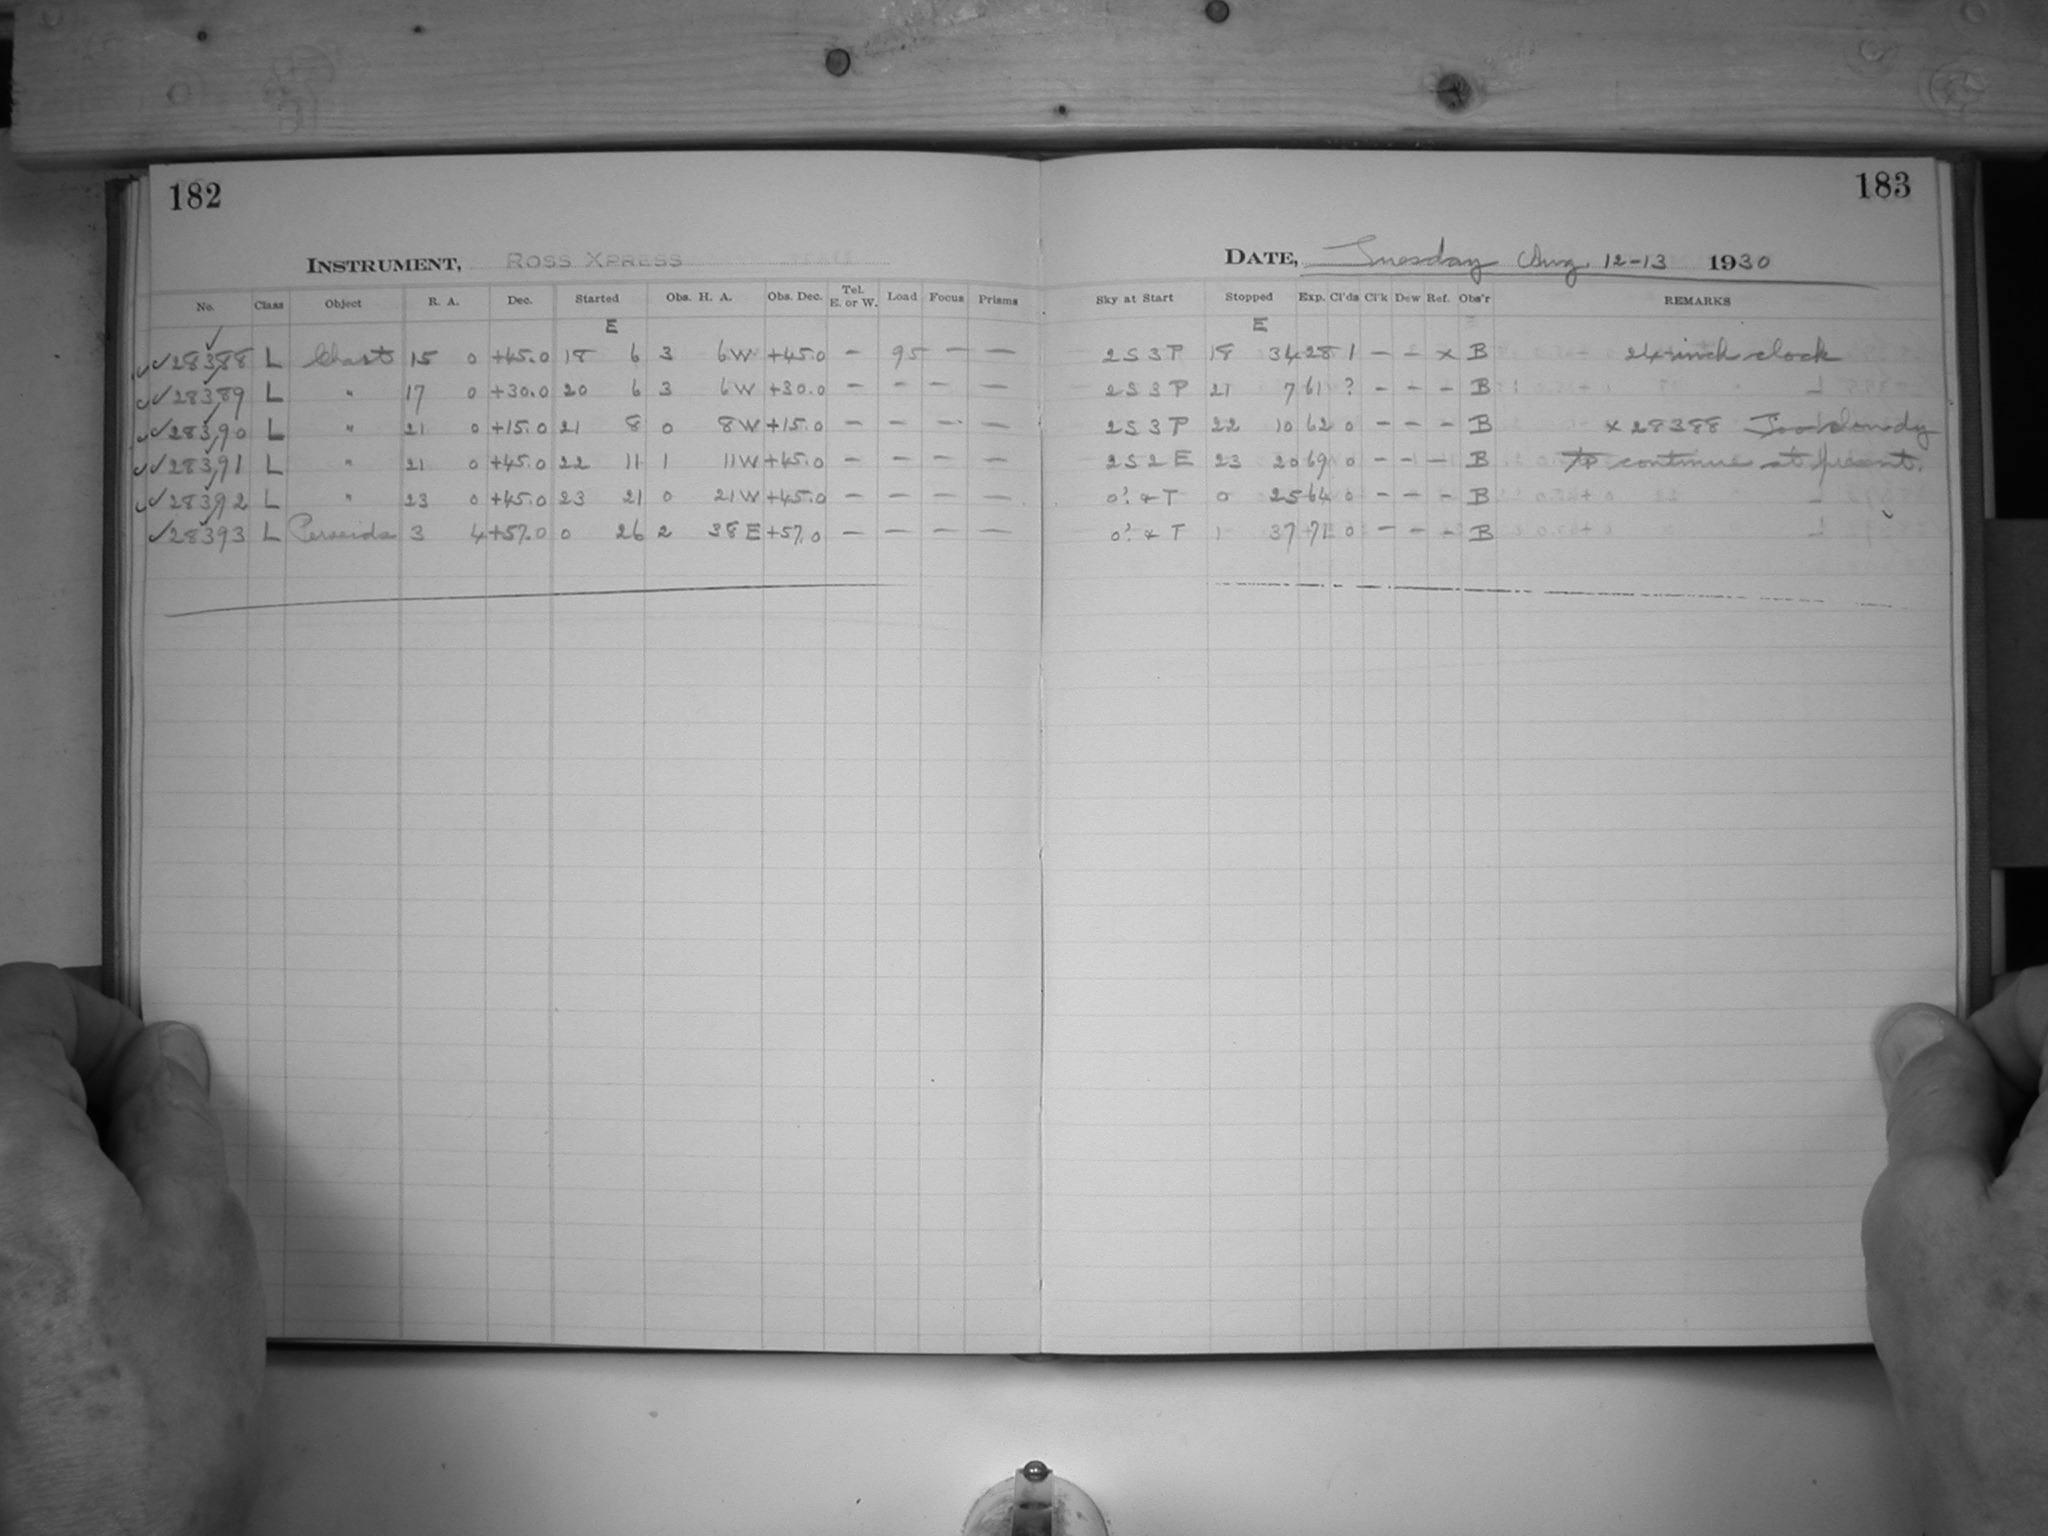 182
183
INSTRUMENT, ROSS XPRESS
DATE, Tuesday Aug. 12-13 1930
No. Class Object R. A. Dec. Started Obs. H. A. Obs. Dec. Tel. E. or W. Load Focus Prisms Sky at Start Stopped Exp. Cl'ds Cl'k Dew Ref. Obs'r REMARKS
E E
✓✓28388 L Chart 15 0 +45.0 18 6 3 6W +45.0 — 95 — — 2S3P 18 34 28 1 — — x B 24-inch clock
✓✓28389 L " 17 0 +30.0 20 6 3 6W +30.0 — — — — 2S3P 21 7 61 ? — — — B
✓✓28390 L " 21 0 +15.0 21 8 0 8W +15.0 — — — — 2S3P 22 10 62 0 — — — B x 28388 Too cloudy
✓✓28391 L " 21 0 +45.0 22 11 1 11W +45.0 — — — — 2S2E 23 20 69 0 — — — B to continue at present.
✓✓28392 L " 23 0 +45.0 23 21 0 21W +45.0 — — — — 0? & T 0 25 64 0 — — — B
✓28393 L Perseids 3 4 +57.0 0 26 2 38E +57.0 — — — — 0? & T 1 37 71 0 — — — B